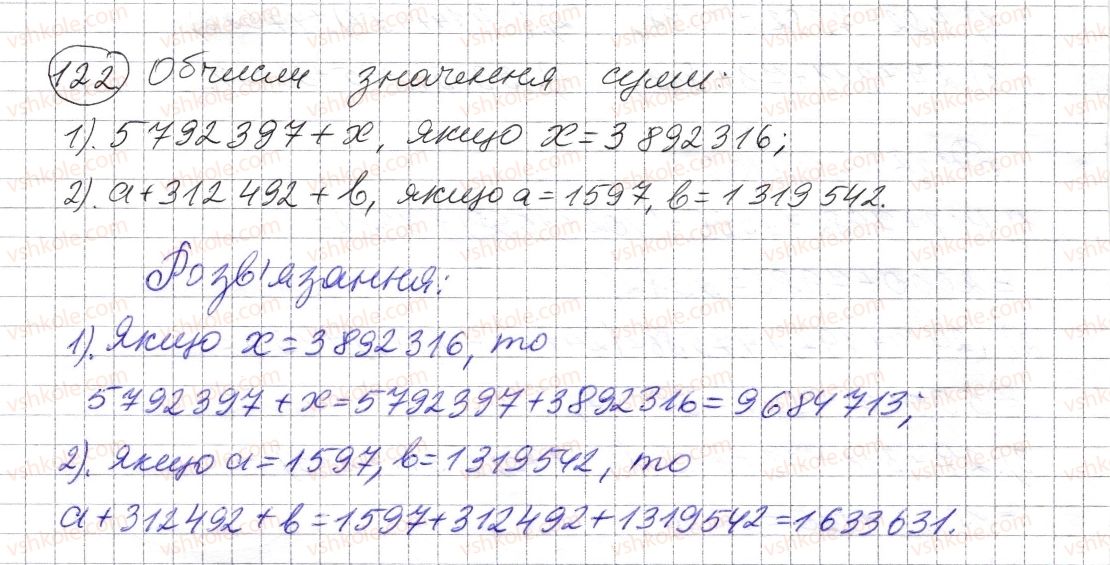 122 Обчисли значення суми:
1). 5 792 397 + x, якщо x = 3 892 316;
2). a + 312 492 + b, якщо a = 1597, b = 1 319 542.
Розв'язання:
1). Якщо x = 3 892 316, то
5 792 397 + x = 5792397 + 3892316 = 9 684 713;
2). якщо a = 1597, b = 1319542, то
a + 312492 + b = 1597 + 312492 + 1319542 = 1633631.